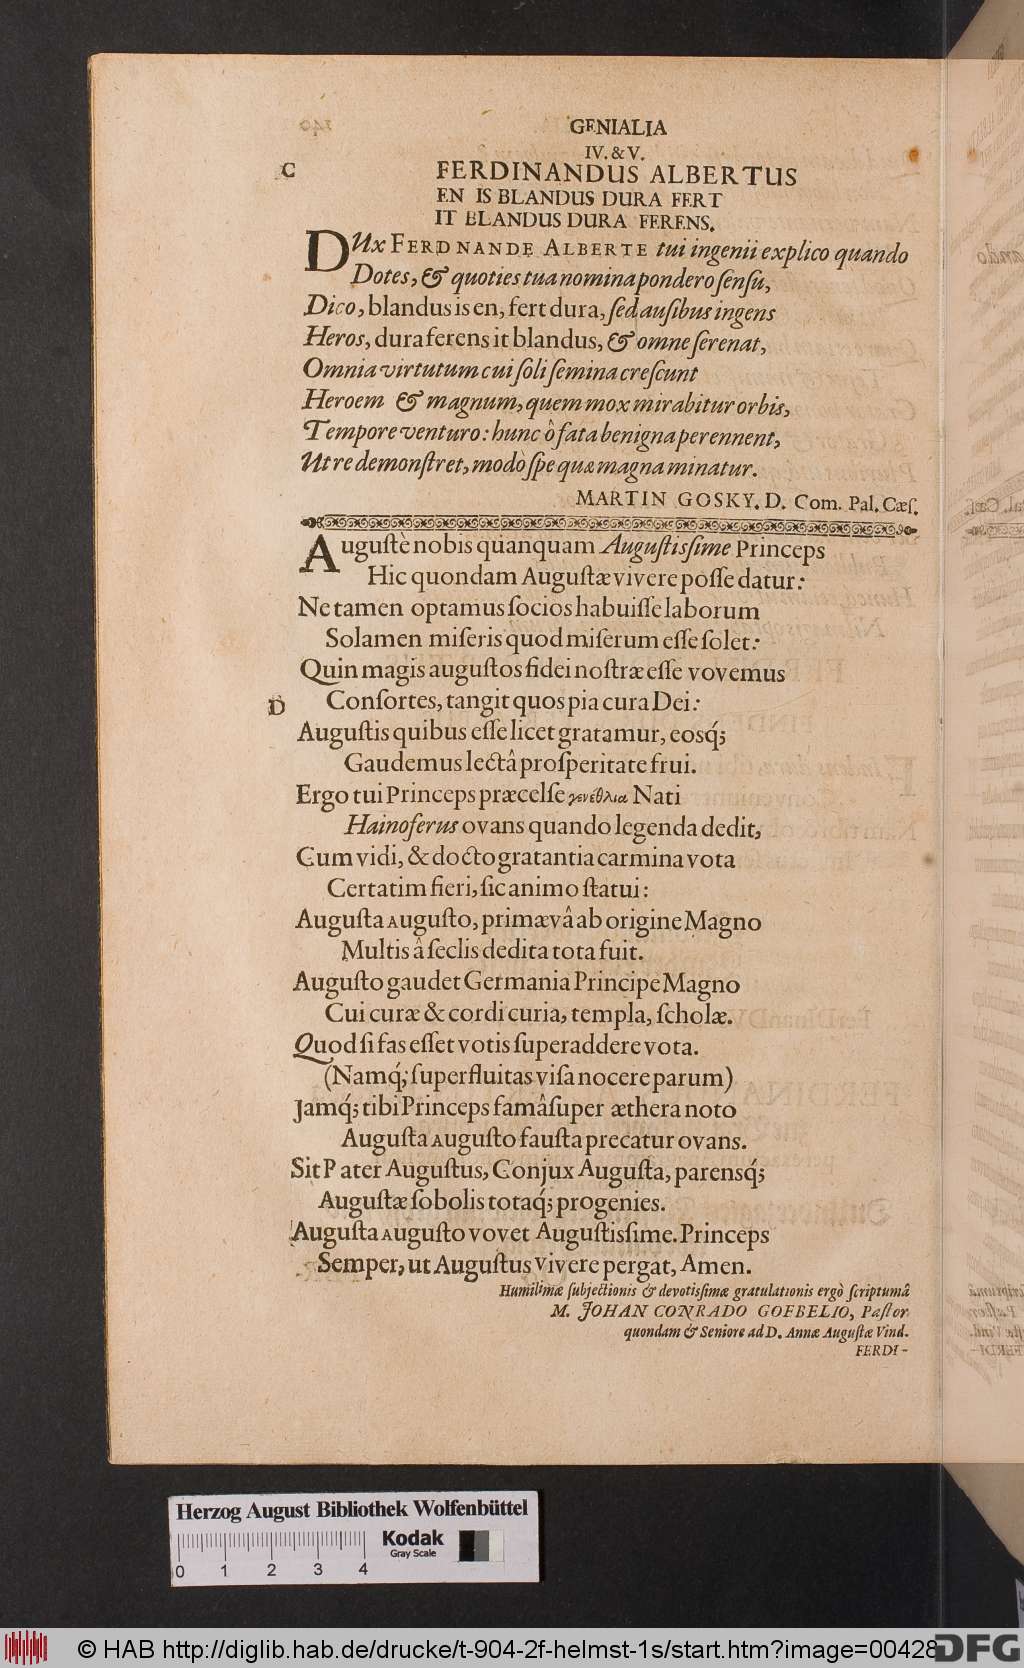 GENIALIA
IV. & V.
C
FERDINANDUS ALBERTUS
EN IS BLANDUS DURA FERT
IT BLANDUS DURA FERENS.
DUx FERDNANDE ALBERTE tui ingenii explico quando
Dotes, & quoties tua nomina pondero ſenſu,
Dico, blandus is en, fert dura, ſed auſibus ingens
Heros, dura ferens it blandus, & omne ſerenat,
Omnia virtutum cui ſoli ſemina creſcunt
Heroem & magnum, quem mox mirabitur orbis,
Tempore venturo: hunc ô fata benigna perennent,
Ut re demonſtret, modò ſpe quæ magna minatur.
MARTIN GOSKY. D. Com. Pal. Cæſ.
Auguſtè nobis quanquam Auguſtiſſime Princeps
Hic quondam Auguſtæ vivere poſſe datur:
Ne tamen optamus ſocios habuiſſe laborum
Solamen miſeris quod miſerum eſſe ſolet:
Quin magis auguſtos fidei noſtræ eſſe vovemus
D
Conſortes, tangit quos pia cura Dei:
Auguſtis quibus eſſe licet gratamur, eosq́;
Gaudemus lectâ proſperitate frui.
Ergo tui Princeps præcelſe γενέθλια Nati
Hainoferus ovans quando legenda dedit,
Cum vidi, & docto gratantia carmina vota
Certatim fieri, ſic animo ſtatui:
Auguſta Auguſto, primævâ ab origine Magno
Multis â ſeclis dedita tota fuit.
Auguſto gaudet Germania Principe Magno
Cui curæ & cordi curia, templa, ſcholæ.
Quod ſi fas eſſet votis ſuperaddere vota.
(Namq́; ſuperfluitas viſa nocere parum)
Jamq́; tibi Princeps famâ ſuper æthera noto
Auguſta Auguſto fauſta precatur ovans.
Sit Pater Auguſtus, Conjux Auguſta, parensq́;
Auguſtæ ſobolis totaq́; progenies.
Auguſta Auguſto vovet Auguſtisſime. Princeps
Semper, ut Auguſtus vivere pergat, Amen.
Humilimæ ſubjectionis & devotisſimæ gratulationis ergò ſcriptumâ
M. JOHAN CONRADO GOEBELIO, Paſtor
quondam & Seniore ad D. Annæ Auguſtæ Vind.
FERDI-
Herzog August Bibliothek Wolfenbüttel
Kodak
Gray Scale
0 1 2 3 4
© HAB http://diglib.hab.de/drucke/t-904-2f-helmst-1s/start.htm?image=00428
DFG